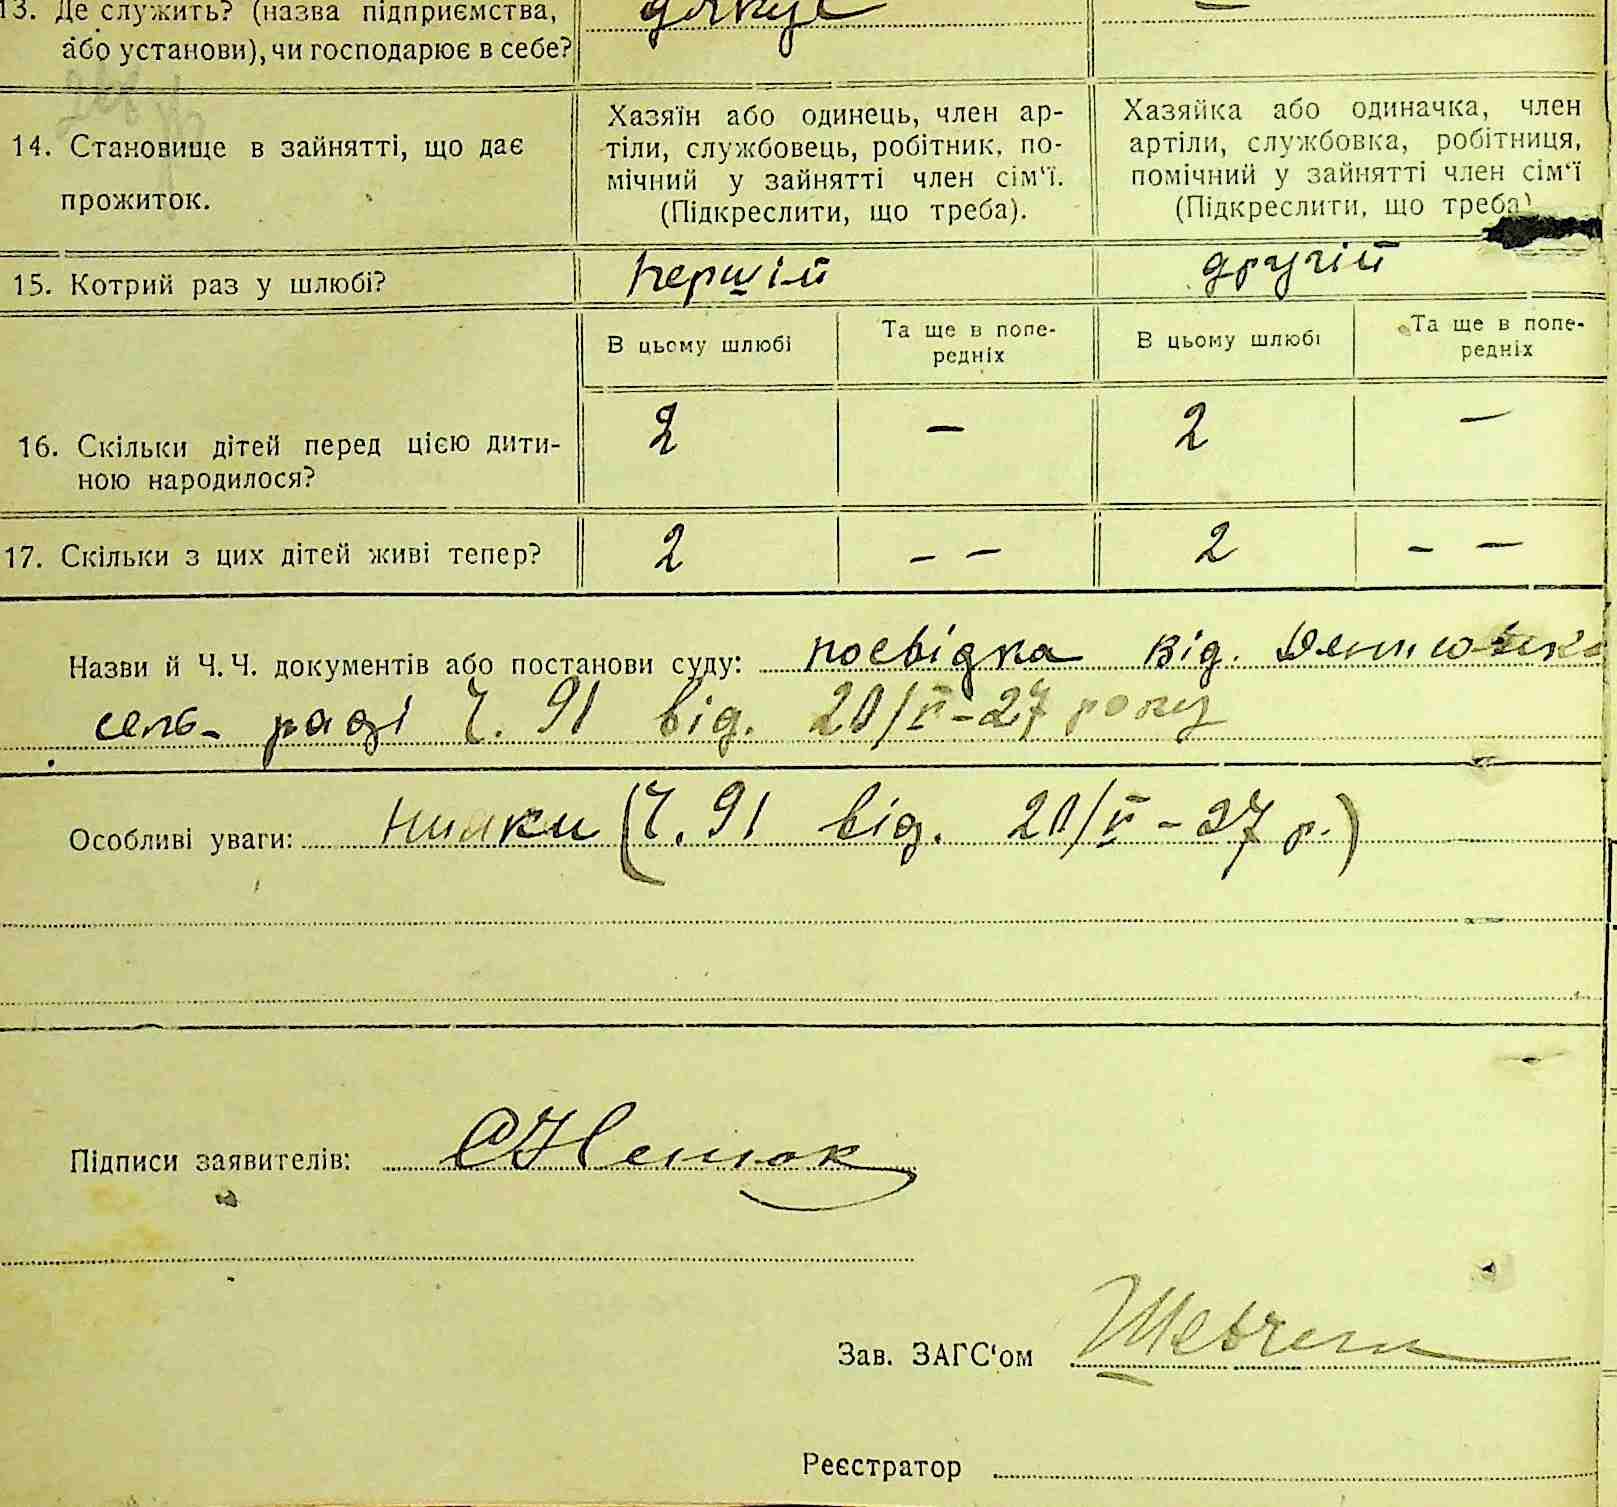 13. Де служить? (назва підприємства,
або установи), чи господарює в себе?
14. Становище в зайнятті, що дає
прожиток.
Хазяїн або одинець, член ар-
тіли, службовець, робітник, по-
мічний у зайнятті член сім'ї.
(Підкреслити, що треба).
Хазяйка або одиначка, член
артіли, службовка, робітниця,
помічний у зайнятті член сім'ї
(Підкреслити, що треба)
15. Котрий раз у шлюбі? першій другій
В цьому шлюбі Та ще в попе-
редніх В цьому шлюбі Та ще в попе-
редніх
16. Скільки дітей перед цією дити-
ною народилося? 2 – 2 –
17. Скільки з цих дітей живі тепер? 2 – – 2 – –
Назви й Ч. Ч. документів або постанови суду: посвідка від.
сель- раді Ч. 91 від. 20/V-27 року
Особливі уваги: нияки (Ч. 91 від. 20/V-27 р.)
Підписи заявителів:
Зав. ЗАГС'ом
Реєстратор